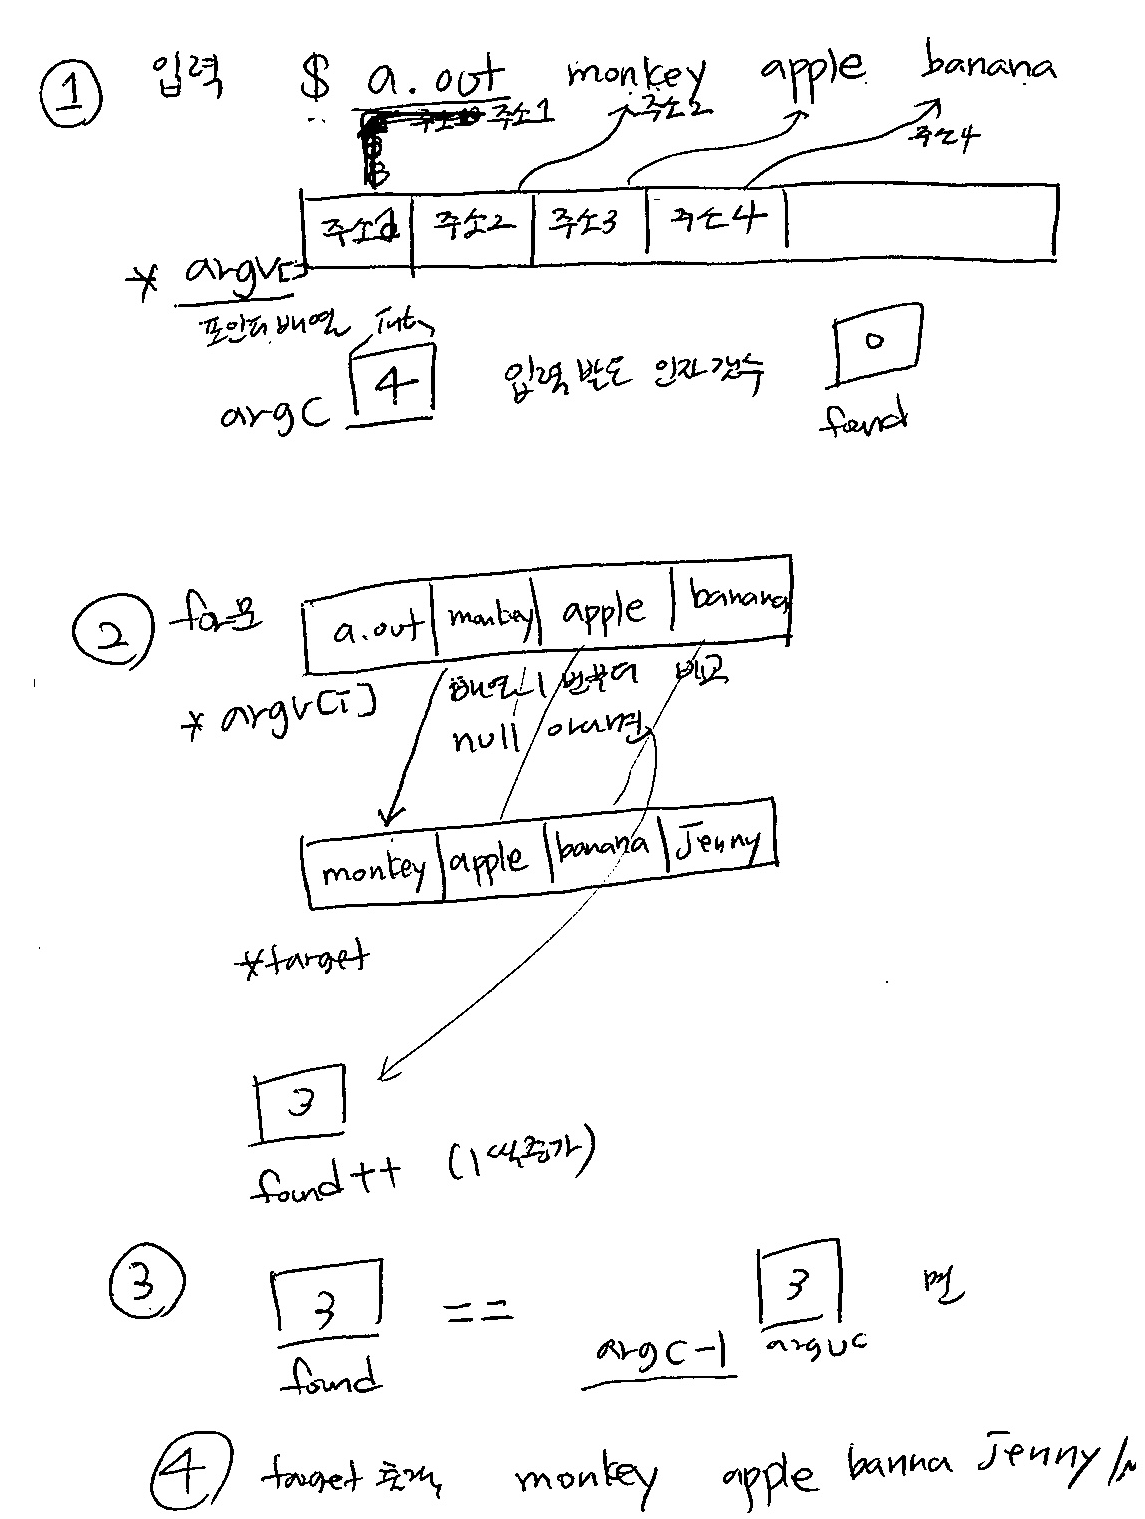 ① 입력 $ a.out monkey apple banana
주소1 주소2
주소4
주소1 주소2 주소3 주소4
* argv[]
포인터 배열 int
argc 4 입력 받은 인자 갯수 0
found
② for문 a.out monkey apple banana
* argv[i] 배열 1 번부터 비교
null 아니면
monkey apple banana Jenny
*target
3
found++ (1씩증가)
③ 3 == 3 면
found argc-1 argvc
④ target 출력, monkey apple banna Jenny